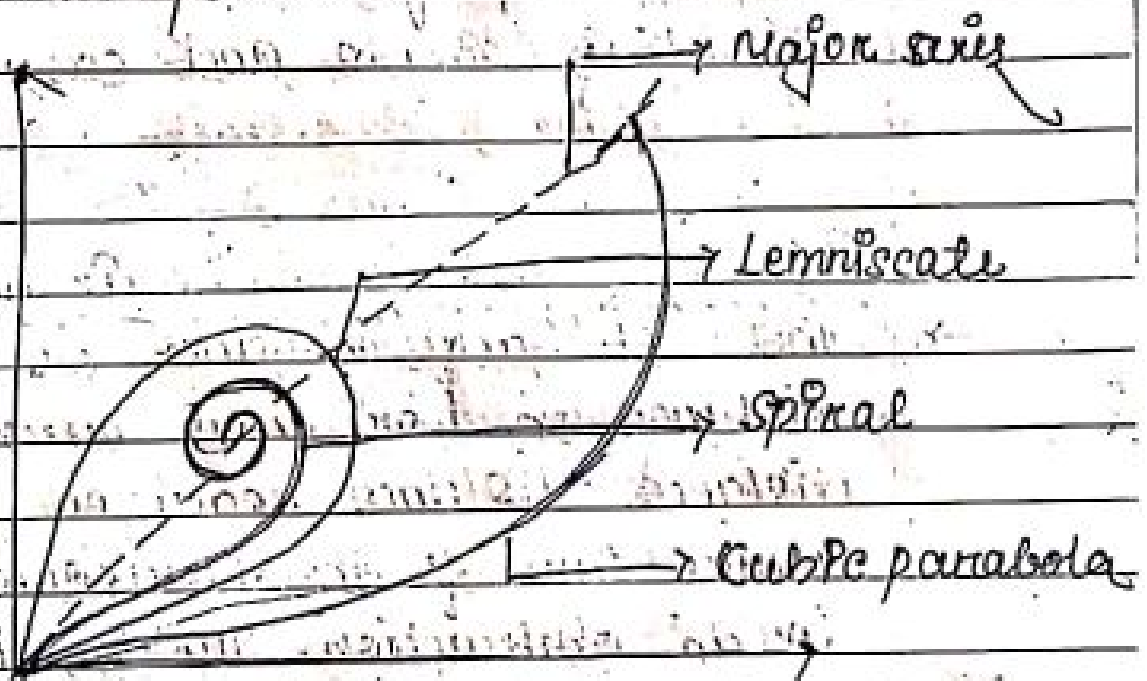 Major axis
Lemniscate
Spiral
Cubic parabola